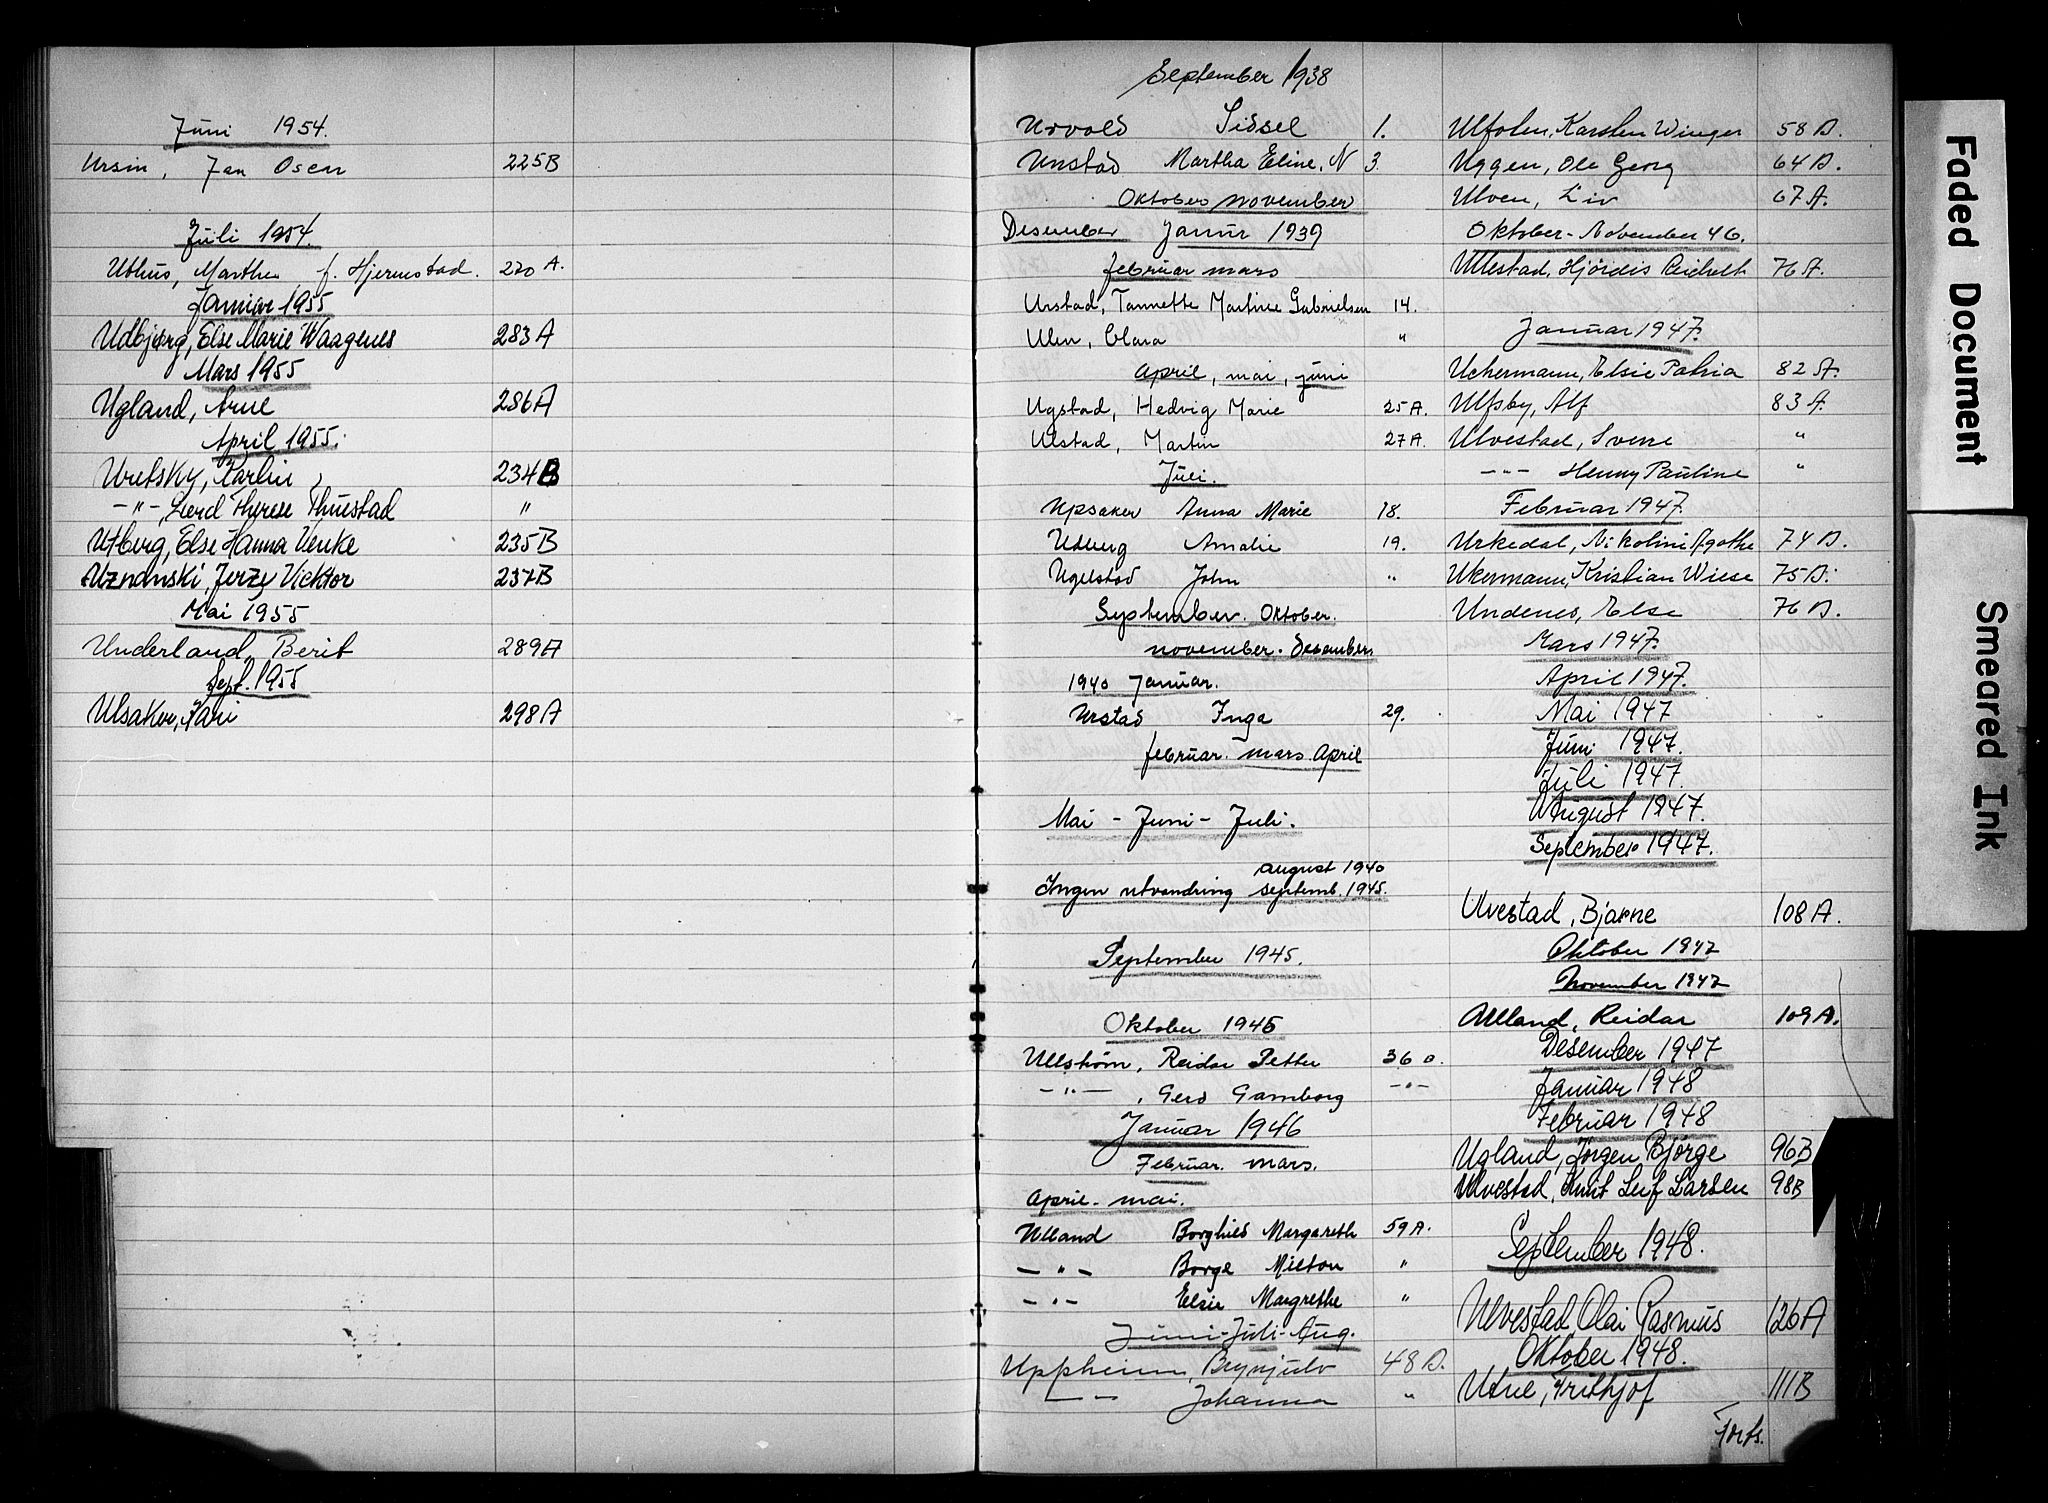 Juni 1954.
Ursin, Jan Osen 225B
Juli 1954.
Uthus, Marthe f. Hjermstad. 220 A.
Januar 1955
Udbjørg, Else Marie Waagenes 283A
Mars 1955
Ugland, Arne 286A
April 1955.
Uretsky, Karlin, 234B
-"-, Gerd Therese Thuestad "
Utberg, Else Hanna Venke 235B
Uznanski, Jerzy Vicktor 237B
Mai 1955
Underland, Berit 289A
Sept. 1955
Ulsaker, Kari 298A
September 1938
Urvold Sidsel 1.
Unstad Martha Eline, N 3.
Oktober november
Desember Janur 1939
februar mars
Urstad, Tannette Martine Gabrielsen 14.
Ulen, Clara "
april, mai, juni
Ugstad, Hedvig Marie 25A.
Ulstad, Martin 27A.
Juli.
Upsaker Anna Marie 18.
Udberg Amalie 19.
Ugelstad John "
September. Oktober.
november. Desember
1940 Januar.
Urstad Inga 29.
februar. mars April
Mai - Juni - Juli.
august 1940
Ingen utvandring septemb. 1945.
September 1945.
Oktober 1945
Ullstrøm, Reidar Petter 36 a.
-"- , Gerd Gamborg -"-
Januar 1946
Februar. mars.
April - mai.
Ulland Borghild Margareth 59A.
-"- Borge Milton "
-"- Elsie Margrethe "
Juni-Juli-Aug.
Uppheim, Brynjulv 48B.
-- Johanna "
Ulfolen, Karsten Winger 58B.
Uggen, Ole Georg 64B.
Ulven, Liv 67A.
Oktober - November 46.
Ullestad, Hjördis Reichelt 76A.
Januar 1947.
Uchermann, Elsie Patria 82A.
Ulfsby, Alf 83A.
Ulvestad, Svene "
-"- Henny Pauline "
Februar 1947.
Urkedal, Nikoline Agathe 74B.
Ukermann, Kristian Wiese 75B.
Undenes, Else 76B.
Mars 1947.
April 1947.
Mai 1947
Juni 1947.
Juli 1947.
August 1947.
September 1947.
Ulvestad, Bjarne 108A.
Oktober 1947
November 1947
Ulland, Reidar 109A.
Desember 1947
Januar 1948
Februar 1948
Ugland, Jörgen Björge 96B
Ulvestad, Knut Leif Larsen 98B
September 1948.
Ulvestad Olai Rasmus 126A
Oktober 1948.
Utne, Frithjof 111B
Forts.
Faded Document
Smeared Ink